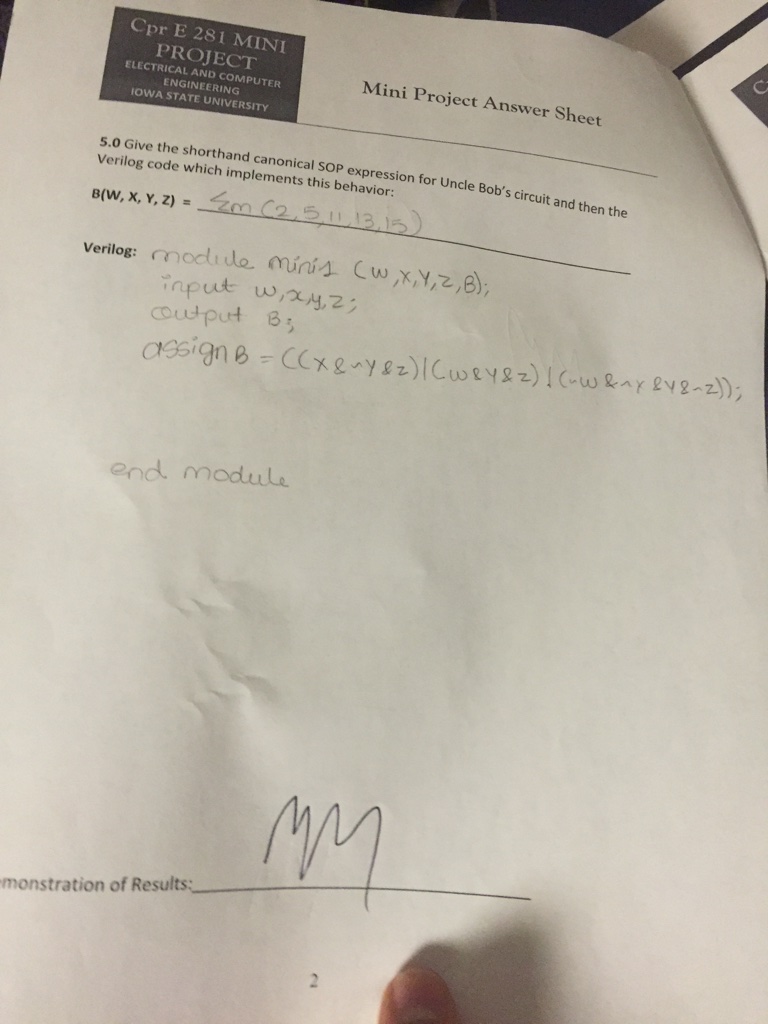 Cpr E 281 MINI
PROJECT
ELECTRICAL AND COMPUTER
ENGINEERING
IOWA STATE UNIVERSITY
Mini Project Answer Sheet
5.0 Give the shorthand canonical SOP expression for Uncle Bob's circuit and then the
Verilog code which implements this behavior:
B(W, X, Y, Z) = Σm (2,5,11,13,15)
Verilog: module mini1 (W,X,Y,Z,B);
input w,x,y,z;
output B;
assign B = ((X&~Y&z)|(W&Y&z)|(~W&~Y&Y&~z));
end module
monstration of Results:
2